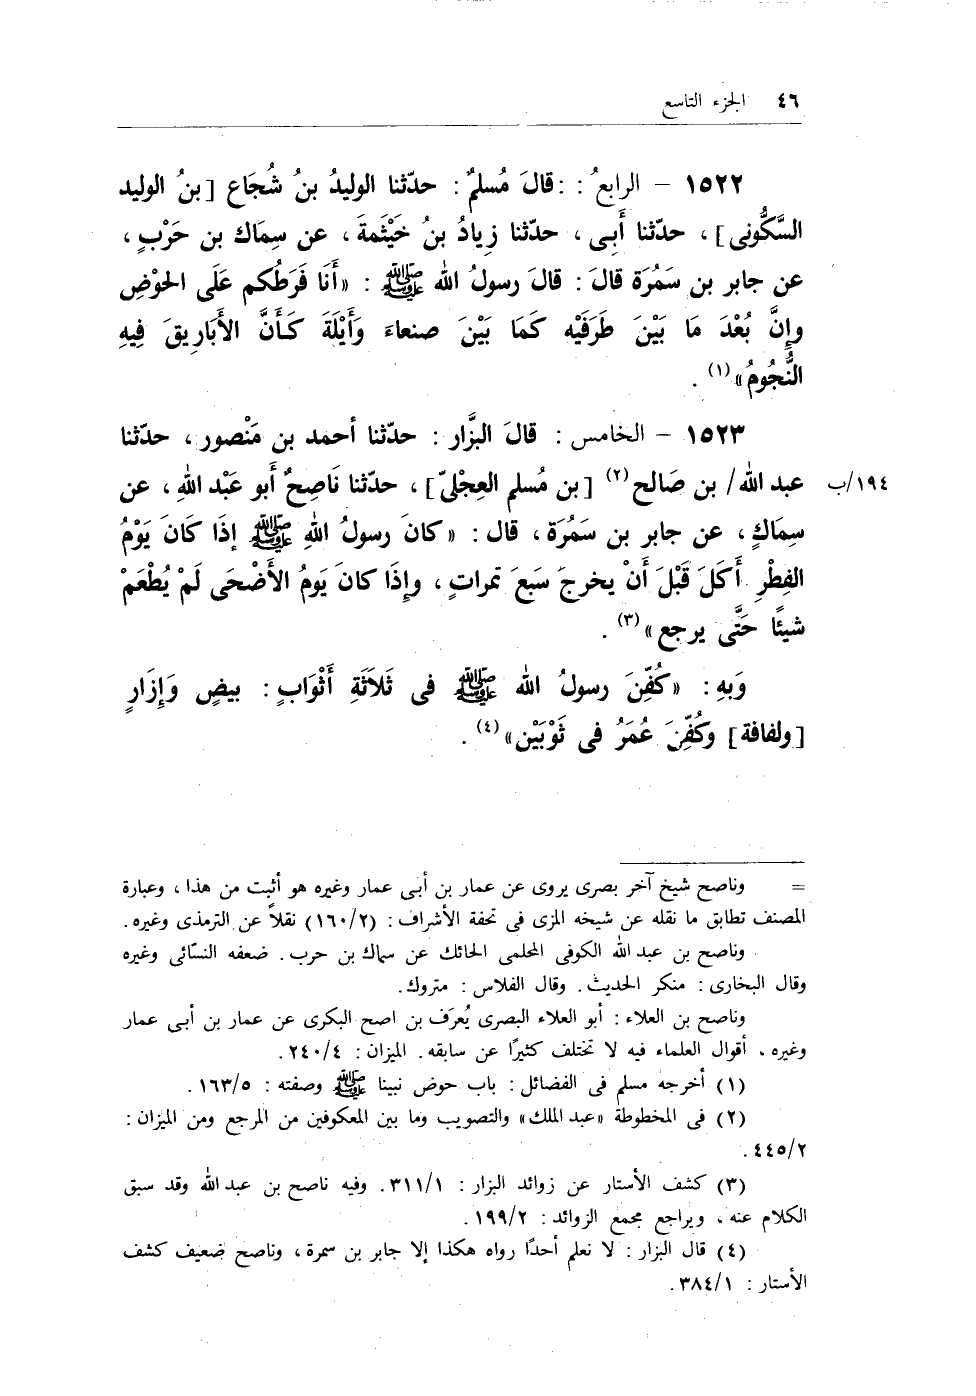 ٤٦ الجزء التاسع
١٥٢٢ – الرابعُ : :قالَ مُسلمٌ : حدّثنا الوليدُ بنُ شُجَاع [بنُ الوليد
السَّكُّونى] ، حدّثنا أَبى ، حدّثنا زيادُ بنُ خَيْثمةَ ، عن سِمَاك بن حَرْبٍ ،
عن جابر بن سَمُرَة قالَ : قالَ رسولُ الله ﷺ : «أَنَا فَرَطُكم عَلَى الحوْضِ
وإِنَّ بُعْدَ مَا بَيْنَ طَرَفَيْه كَمَا بَيْنَ صنعاءَ وَأَيْلَةَ كَـأَنَّ الأَبَاريقَ فِيهِ
النُّجُومُ»(١) .
١٥٢٣ – الخامس : قالَ البزَّار : حدّثنا أحمد بن مَنْصور ، حدّثنا
عبد الله/ بن صَالح(٢) [بن مُسلم العِجْلىّ] ، حدّثنا نَاصِحٌ أَبو عَبْد اللهِ ، عن ١٩٤/ب
سِمَاكٍ ، عن جابر بن سَمُرَة ، قال : «كانَ رسولُ اللهِ ﷺ إذَا كَانَ يَوْمُ
الفِطْرِ أَكَلَ قَبْلَ أَنْ يخرجَ سَبعَ تمراتٍ ، وإِذَا كانَ يَومُ الأَضْحَى لَمْ يُطْعَمْ
شيئًا حَتَّى يرجع»(٣) .
وَبهِ : «كُفِّنَ رسولُ الله ﷺ فى ثَلاَثَةِ أَثْوَابٍ : بيضٍ وَإِزَارٍ
[ولفافة] وكُفِّنَ عُمَرُ فى ثَوْبَيْن»(٤) .
= وناصح شيخ آخر بصرى يروى عن عمار بن أبى عمار وغيره هو أثبت من هذا ، وعبارة
المصنف تطابق ما نقله عن شيخه المزى فى تحفة الأشراف : (١٦٠/٢) نقلاً عن الترمذى وغيره .
وناصح بن عبد الله الكوفى المحلمى الحائك عن سماك بن حرب . ضعفه النسّائى وغيره
وقال البخارى : منكر الحديث . وقال الفلاس : متروك .
وناصح بن العلاء : أبو العلاء البصرى يُعرَف بن اصح البكرى عن عمار بن أبى عمار
وغيره ، أقوال العلماء فيه لا تختلف كثيرًا عن سابقه . الميزان : ٢٤٠/٤ .
(١) أخرجه مسلم فى الفضائل : باب حوض نبينا ﷺ وصفته : ١٦٣/٥ .
(٢) فى المخطوطة «عبد الملك» والتصويب وما بين المعكوفين من المرجع ومن الميزان :
٤٤٥/٢ .
(٣) كشف الأستار عن زوائد البزار : ٣١١/١ . وفيه ناصح بن عبد الله وقد سبق
الكلام عنه ، ويراجع مجمع الزوائد : ١٩٩/٢ .
(٤) قال البزار : لا نعلم أحدًا رواه هكذا إلا جابر بن سمرة ، وناصح ضعيف كشف
الأستار : ٣٨٤/١ .